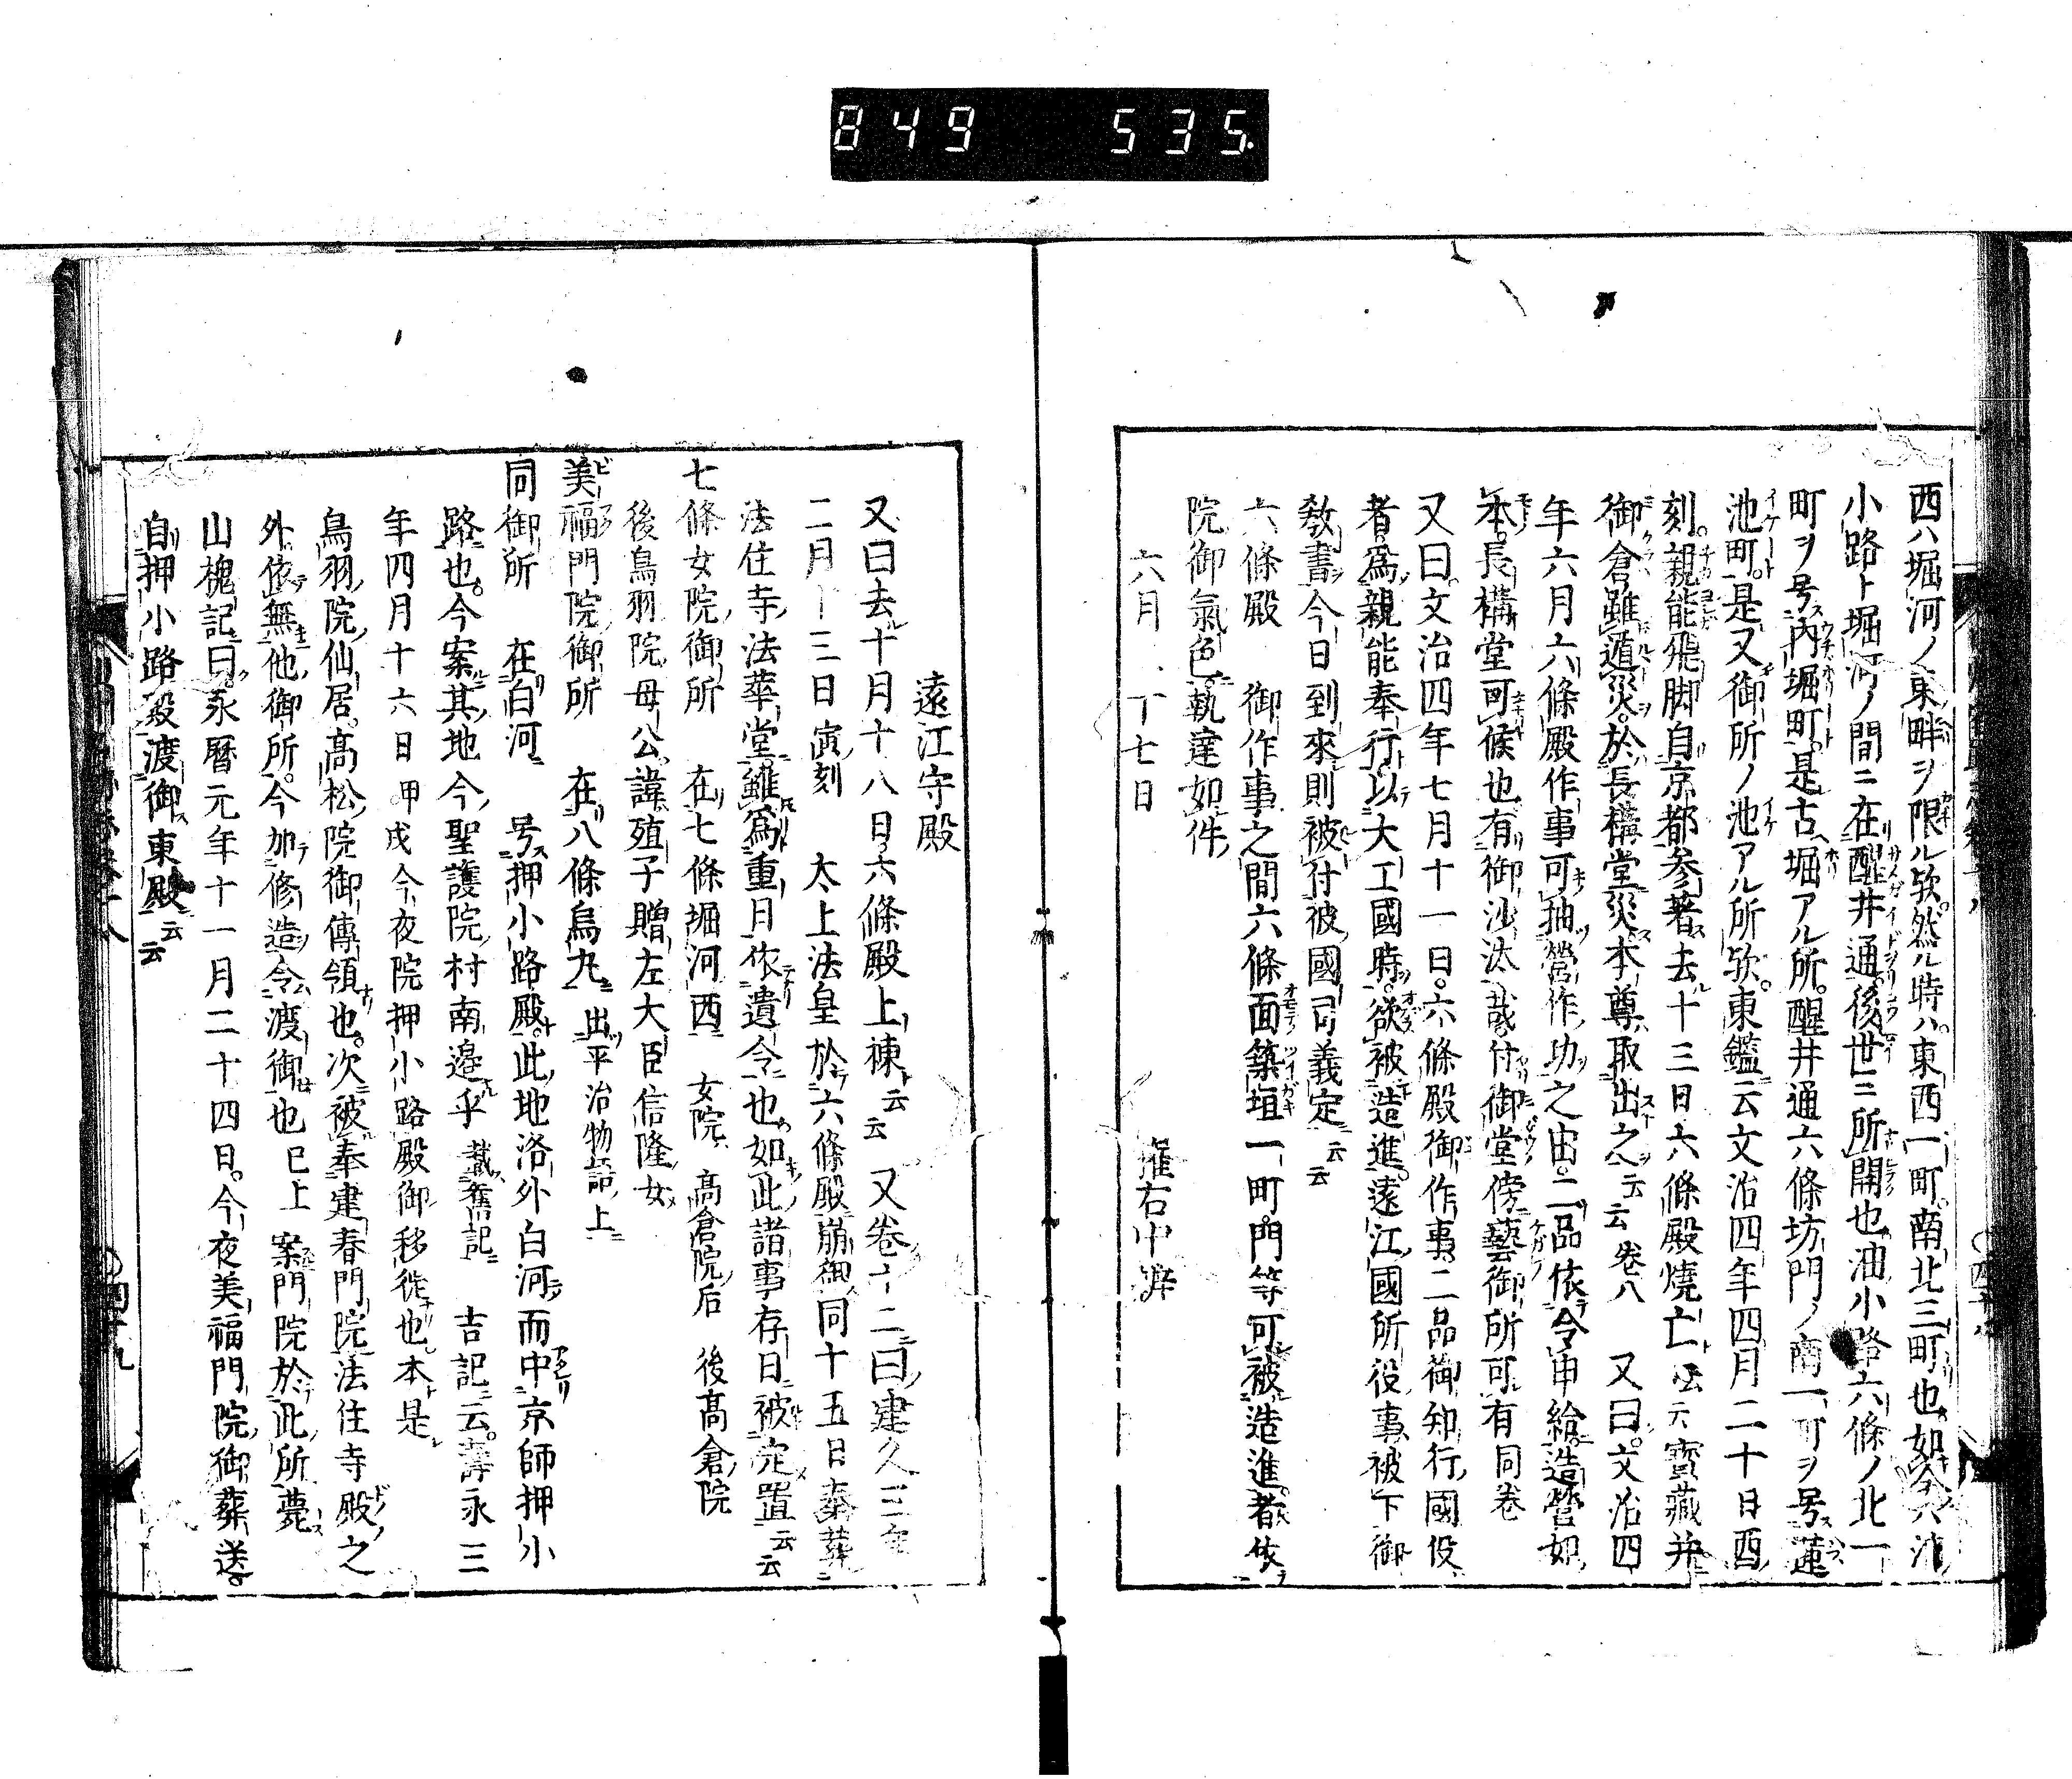 849 535
西ハ堀河ノ東畔ヲ限ル欤然ル時ハ東西一町南北三町也如今ハ油
小路ト堀河ノ間ニ在醒井通後世ニ所開也油小路六條ノ北一
町ヲ号内堀町是古堀アル所醒井通六條坊門ノ南一町ヲ号蓮
池町是又御所ノ池アル所欤東鑑云文治四年四月二十日酉
刻親能飛脚自京都参著去十三日六條殿燒亡云云寳藏并
御倉雖遁災於長構堂災本尊取出之云云卷八 又曰文治四
年六月六條殿作事可抽營作功之由二品依令申給造營如
本長構堂可候也有御沙汰哉付御堂傍藝御所可有同卷
又曰文治四年七月十一日六條殿御作事二品御知行國役
者為親能奉行以大工國時欲被造進遠江國所役事被下御
教書今日到來則被付彼國司義定云云
六條殿 御作事之間六條面築垣一町門等可被造進者依
院御氣色執達如件
六月 十七日 權右中辨
遠江守殿
又曰去十月十八日六條殿上棟云云 又卷十二曰建久三年
二月十三日寅刻 太上法皇於六條殿崩御同十五日奉葬
法住寺法華堂雖為重日依遺令也如此諸事存日被定置云云
七條女院御所 在七條堀河西 女院高倉院后 後高倉院
後鳥羽院母公諱殖子贈左大臣信隆女
美福門院御所 在八條烏丸 出平治物語上
同御所 在白河 号押小路殿此地洛外白河而中京師押小
路也今案其地今聖護院村南邉乎載舊記 吉記云壽永三
年四月十六日甲戌今夜院押小路殿御移徙也本是
鳥羽院仙居高松院御傳領也次被奉建春門院法住寺殿之
外依無他御所今加修造令渡御也已上 案門院於此所薨
山槐記曰永暦元年十一月二十四日今夜美福門院御葬送
自押小路殿渡御東殿云云